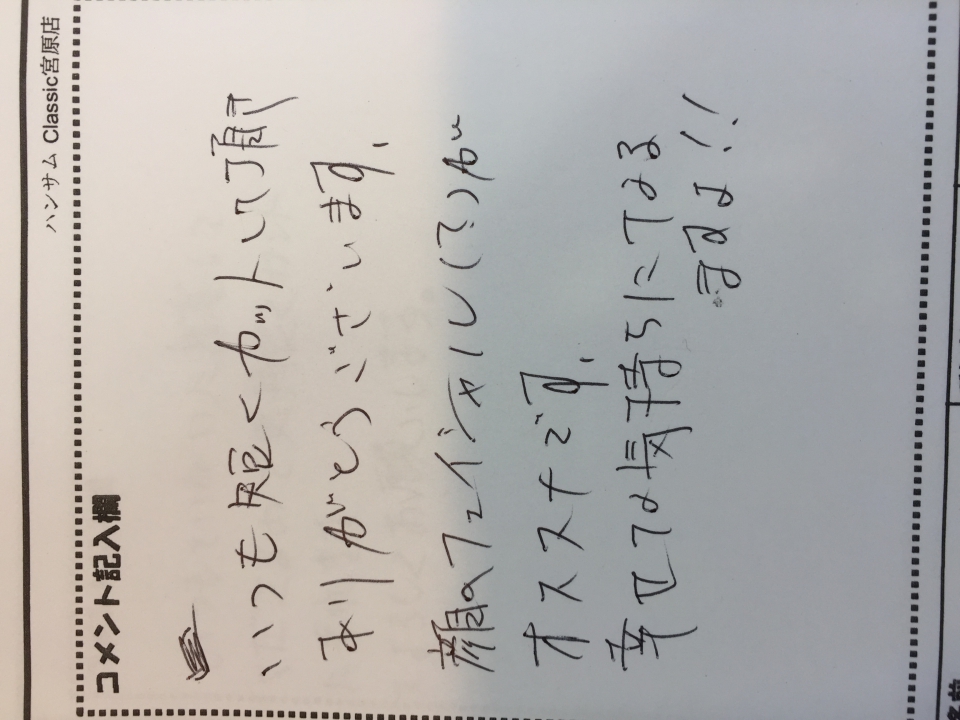 ハンサム Classic宮原店
コメント記入欄
いつも短くカットして頂て
ありがとうございます。
顔のフェイシャル(?)が
オススナです。
幸せな気持ちにてなる
ますよ!!